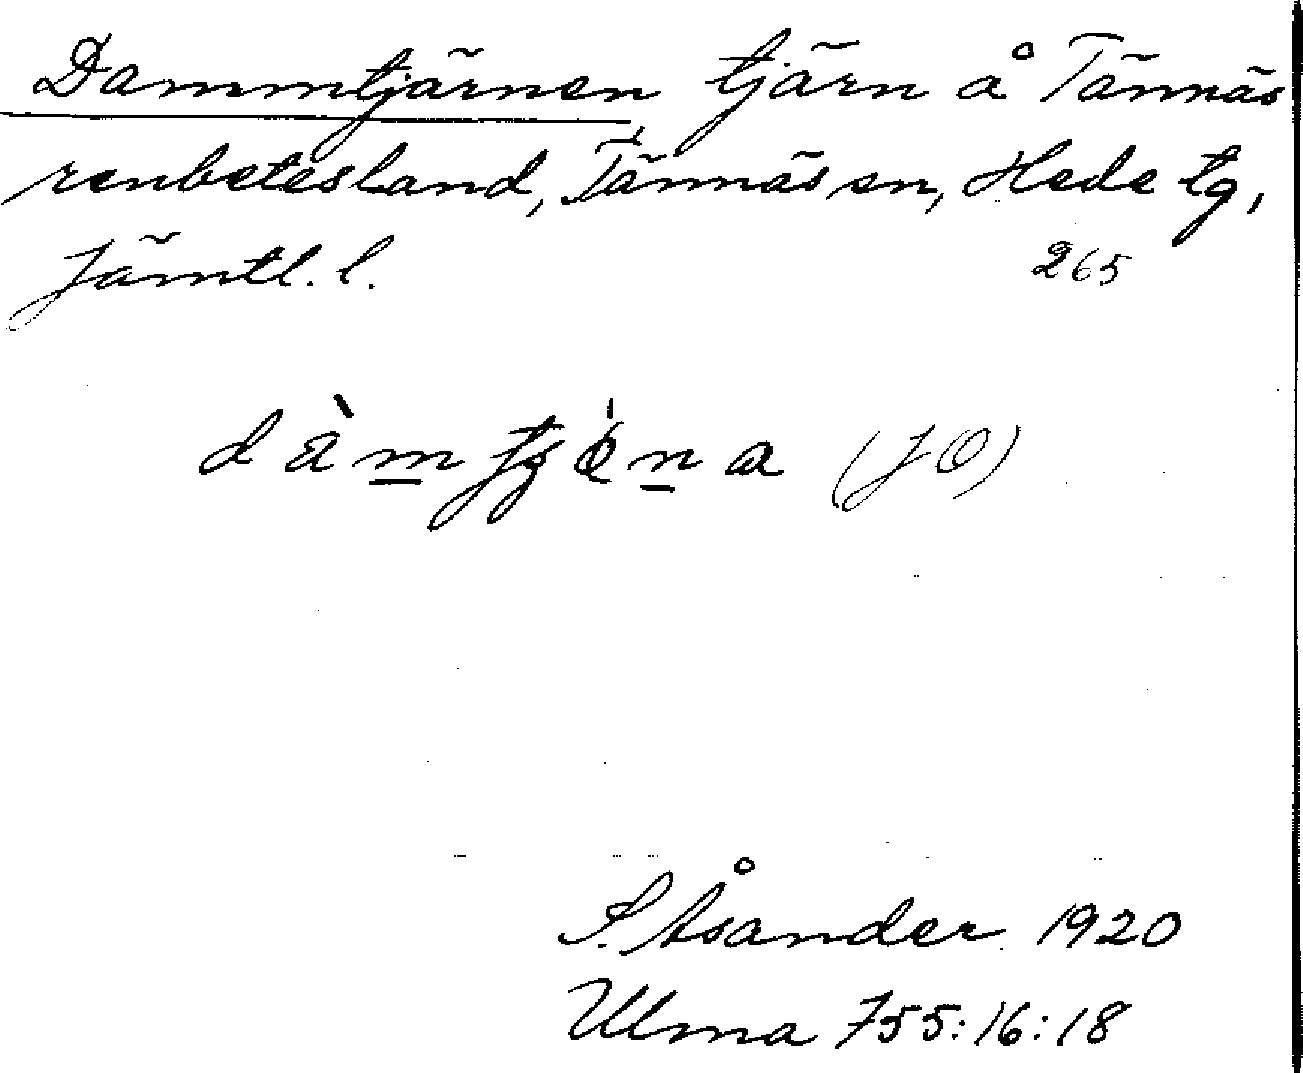 Dammtjärnen tjärn å Tännäs
renbetesland, Tännäs sn, Hede tg,
Jämtl. l. 265
(JO)
S. Åsander 1920
Ulma 755:16:18